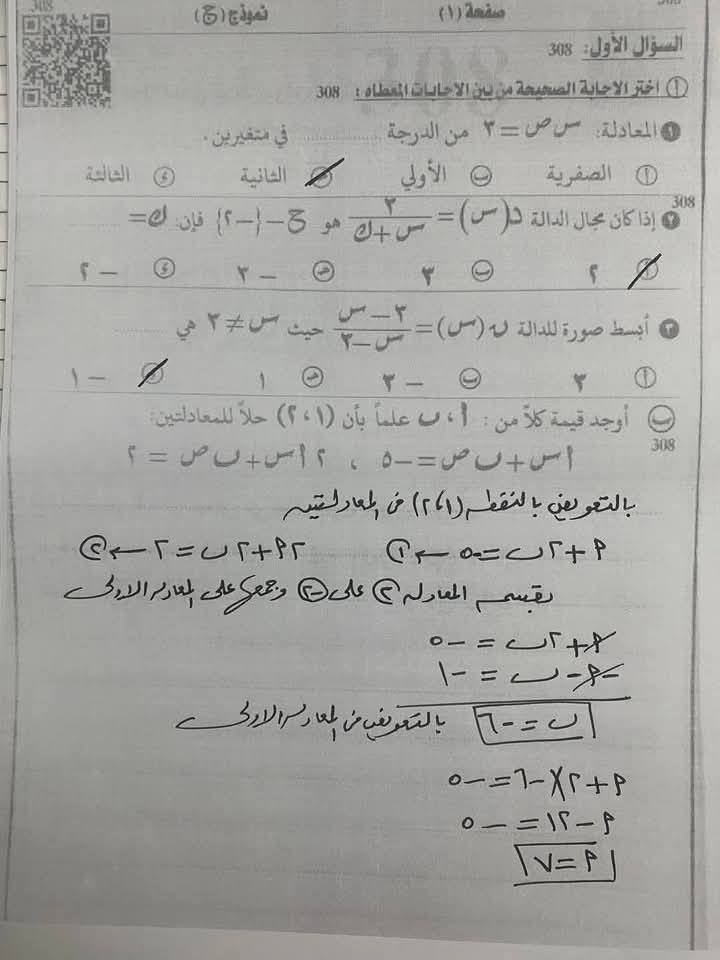 308
صفحة (١) نموذج (ج)
السؤال الأول: 308
أ اختر الاجابة الصحيحة من بين الاجابات المعطاه: 308
١ المعادلة: س ص = ٣ من الدرجة .......... في متغيرين.
أ الصفرية ب الأولي ج الثانية د الثالثة
308
٢ إذا كان مجال الدالة د(س) = ٣/(س + ك) هو ح – {–٢} فإن: ك =
أ ٢ ب ٣ ج – ٣ د – ٢
٣ أبسط صورة للدالة ن(س) = (٣ – س)/(س – ٣) حيث س ≠ ٣ هي
أ ٣ ب – ٣ ج ١ د – ١
ب أوجد قيمة كلاً من: أ ، ب علماً بأن (١، ٢) حلاً للمعادلتين:
308
أس + ب ص = – ٥ ، ٢ أس + ب ص = ٢
بالتعويض بالنقطه (١، ٢) في المعادلتين
٢ + ٢ب = –٥ ← ① ٢٢ + ٢ب = ٢ ← ②
بقسمه المعادله ② على –٢ وجمعها على المعادله الاولى
٢ + ٢ب = –٥
–٢ – ب = –١
ب = –٦ بالتعويض في المعادله الاولى
٢ + ٢ × –٦ = –٥
٢ – ١٢ = –٥
٢ = ٧